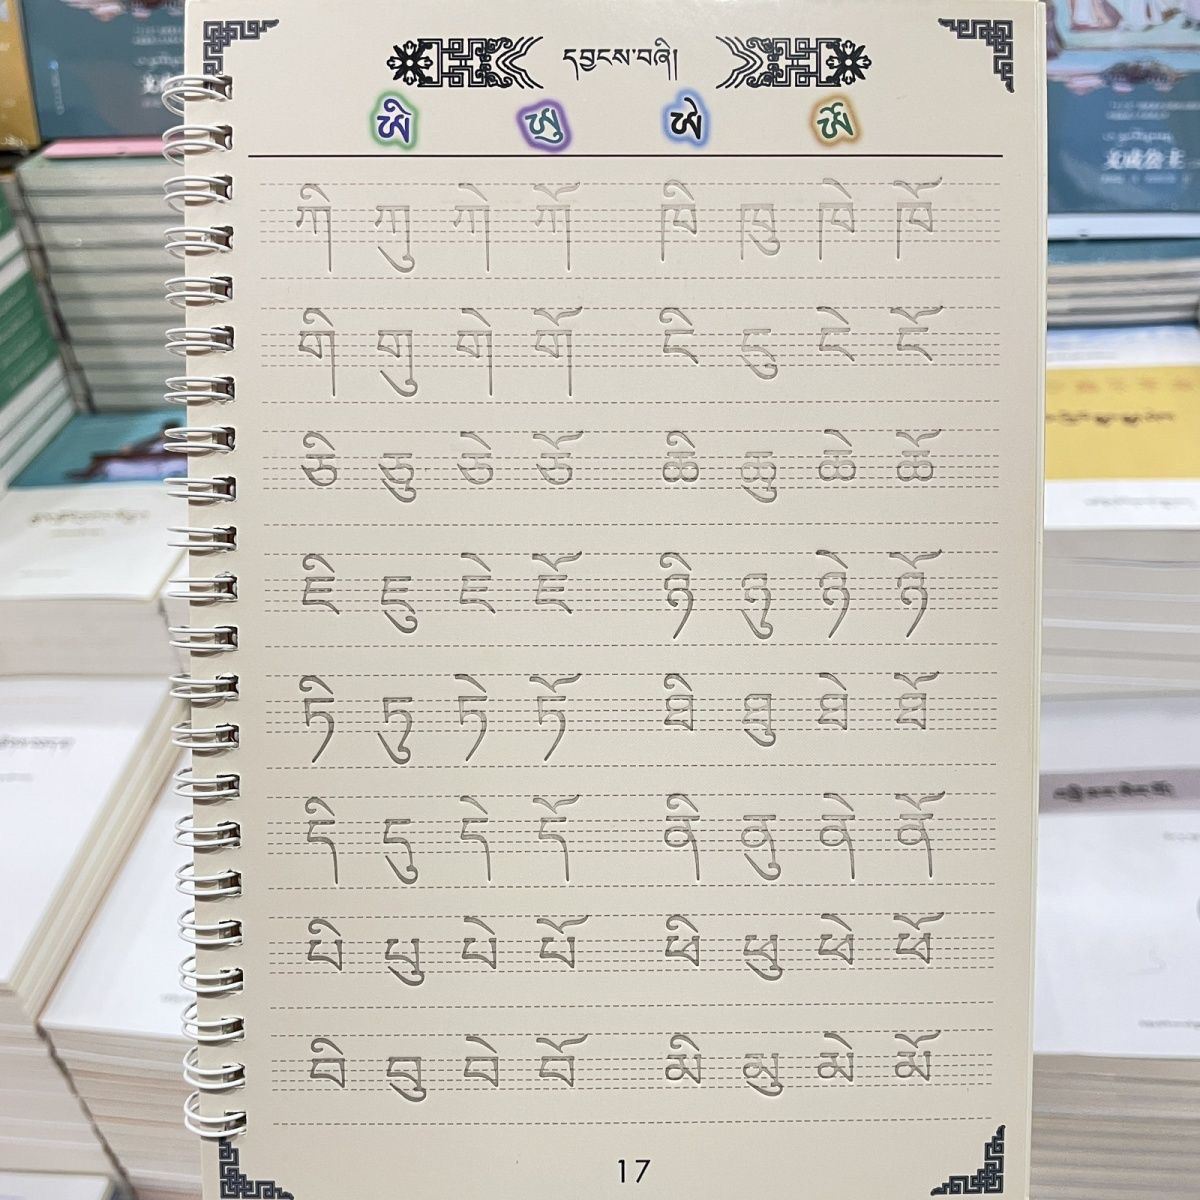 དབྱངས་བཞི།
ཨི ཨུ ཨེ ཨོ
ཀི ཀུ ཀེ ཀོ ཁི ཁུ ཁེ ཁོ
གི གུ གེ གོ ངི ངུ ངེ ངོ
ཅི ཅུ ཅེ ཅོ ཆི ཆུ ཆེ ཆོ
ཇི ཇུ ཇེ ཇོ ཉི ཉུ ཉེ ཉོ
ཏི ཏུ ཏེ ཏོ ཐི ཐུ ཐེ ཐོ
དི དུ དེ དོ ནི ནུ ནེ ནོ
པི པུ པེ པོ ཕི ཕུ ཕེ ཕོ
བི བུ བེ བོ མི མུ མེ མོ
17
文成公主